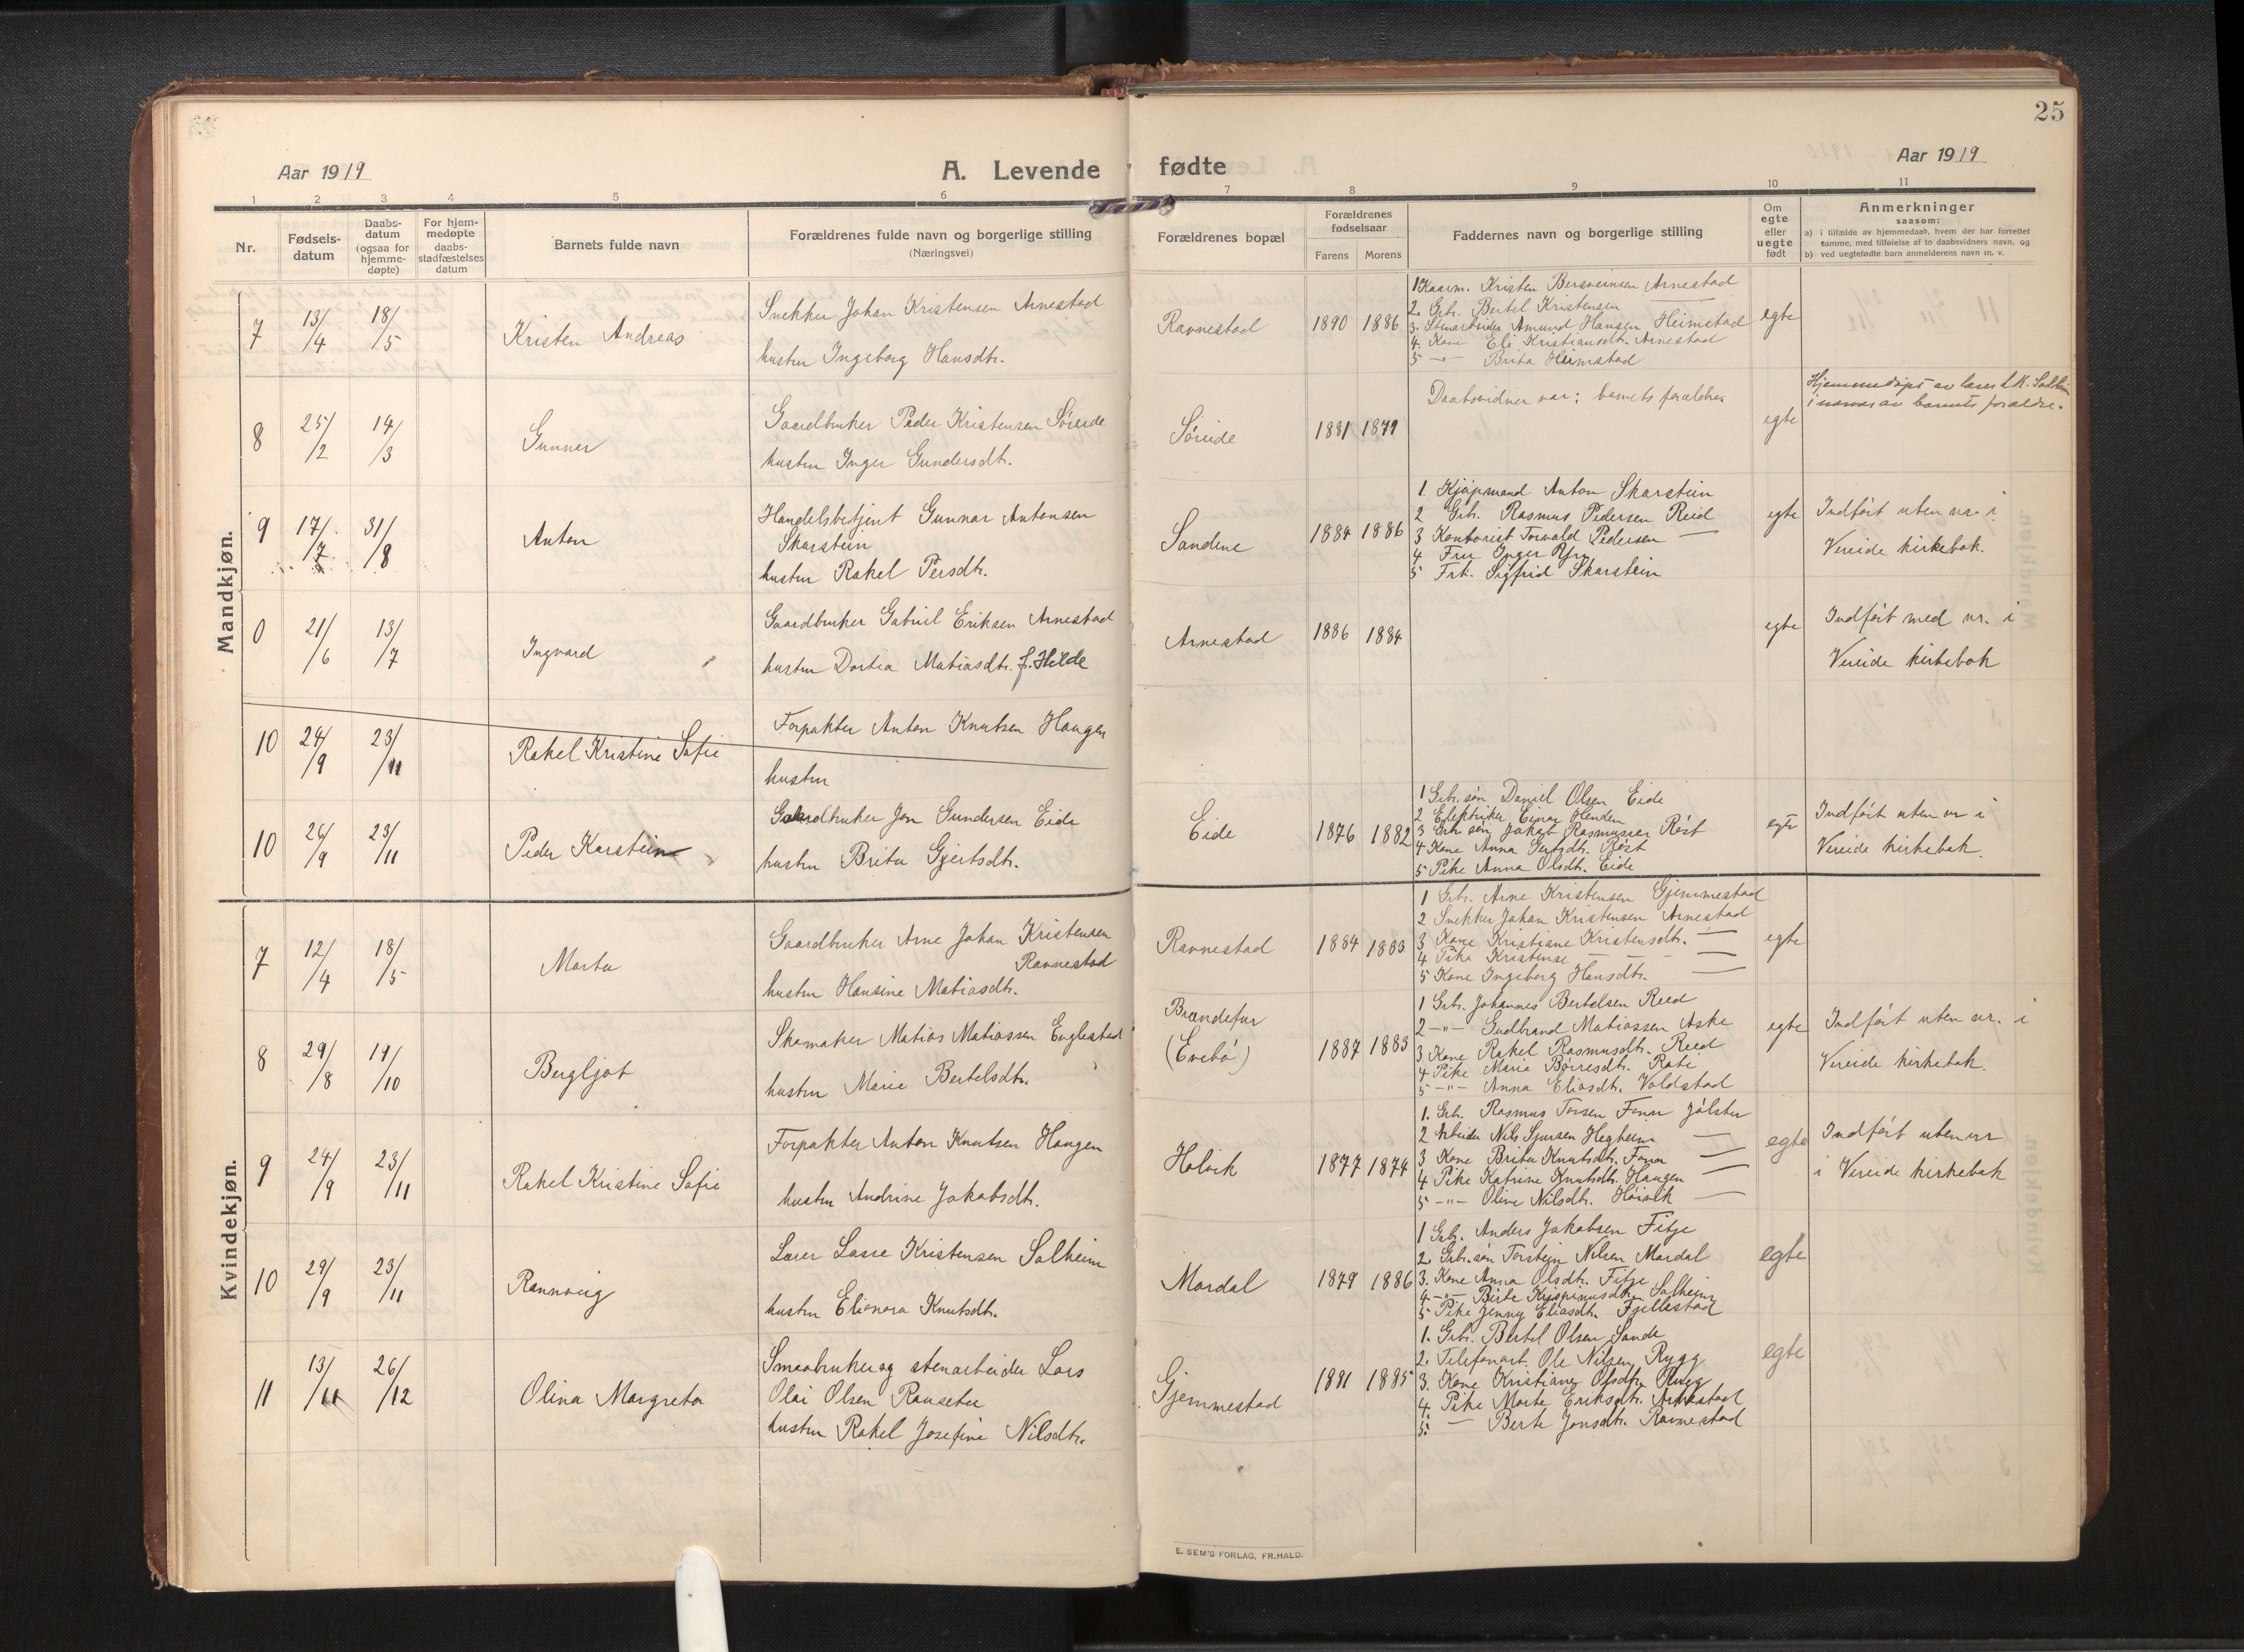 25
Aar 1919
A. Levende fødte
Aar 1919
1 2 3 4 5 6 7 8 9 10 11
Nr.
Fødsels-
datum
Daabs-
datum
(ogsaa for
hjemme-
døpte)
For hjem-
medøpte
daabs-
stadfæstelses
datum
Barnets fulde navn
Forældrenes fulde navn og borgerlige stilling
(Næringsvei)
Forældrenes bopæl
Forældrenes
fødselsaar
Farens Morens
Faddernes navn og borgerlige stilling
Om
egte
eller
uegte
født
Anmerkninger
saasom:
a) i tilfælde av hjemmedaab, hvem der har forrettet
samme, med tilføielse af to daabsvidners navn, og
b) ved uegtefødte barn anmelderens navn m. v.
Mandkjøn.
7 13/4 18/5 Kristen Andreas
Snekker Johan Kristensen Arnestad
hustru Ingeborg Hansdtr.
Ravnestad 1890 1886
1 Kaarm. Kristen Berveinsen Arnestad
2. Grb. Bertel Kristensen —
3. Stenarbeider Amund Hansen Heimstad
4. Kone Eli Kristiansdtr. Arnestad
5 —"— Brita Heimstad
egte
8 25/2 14/3 Gunner
Gaardbruker Peder Kristensen Söreide
hustru Inger Gundersdtr.
Söreide 1881 1879
Daabsvidner var: barnets forældre
egte
Hjemmedöpt av lærer L.K. Solheim
i nærvær av barnets forældre.
9 17/7 31/8 Anton
Handelsbetjent Gunnar Antonsen
Skarstein
hustru Rakel Persdtr.
Sandene 1884 1886
1. Kjöpmand Anton Skarstein
2 Grb. Rasmus Pedersen Reid
3 Kontorist Torvald Pedersen —
4. Fru Inger
5 Frk. Sigfrid Skarstein
egte
Indfört uten nr. i
Vereide kirkebok.
0 21/6 13/7 Ingvard
Gaardbruker Gabriel Eriksen Arnestad
hustru Dortea Matiasdtr. f. Hilde
Arnestad 1886 1884
egte
Indfört med nr. i
Vereide kirkebok
10 24/9 23/11 Rakel Kristine Sofie
Forpakter Anton Knutsen Haugen
hustru
10 26/9 23/11 Peder Karstein
Gaardbruker Jon Gundersen Eide
hustru Brita Gjertsdtr.
Eide 1876 1882
1 Grb.sön Daniel Olsen Eide
2 Elektriker Einar Henden
3 Grb sön Jakob Rasmussen Röst
4 Kone Anna Gertsdtr. Röst
5 Pike Anna Olsdtr. Eide
egte
Indfört uten nr i
Vereide kirkebok.
Kvindekjøn.
7 12/4 18/5 Marta
Gaardbruker Arne Johan Kristensen
Ravnestad
hustru Hansine Matiasdtr.
Ravnestad 1884 1883
1 Grb. Arne Kristensen Gjemmestad
2 Snekker Johan Kristensen Arnestad
3 Kone Kristiane Kristensdtr. —
4 Pike Kristense — — —
5 Kone Ingeborg Hansdtr. —
egte
8 29/8 19/10 Bergljot
Skomaker Matias Matiassen Englestad
hustru Marie Bertelsdtr.
Brandefur
(Evebö)
1887 1883
1 Grb. Johannes Bertelsen Reed
2 —"— Gudbrand Matiassen Aske
3 Kone Rakel Rasmusdtr. Reed
4 Pike Marie Böiresdtr. Rati
5 —"— Anna Eliasdtr. Voldstad
egte
Indfört uten nr. i
Vereide kirkebok.
9 24/9 23/11 Rakel Kristine Sofie
Forpakter Anton Knutsen Haugen
hustru Andrine Jakobsdtr.
Holvik 1877 1874
1. Grb. Rasmus Torsen Fonn Jölster
2 Arbeider Nils Sjursen Hegheim —
3 Kone Brita Knutsdtr. Fonn —
4 Pike Katrine Knutsdtr. Haugen —
5 —"— Oline Nilsdtr. Höivik —
egte
Indfört uten nr
i Vereide kirkebok
10 29/9 23/11 Rannveig
Lærer Lasse Kristensen Solheim
hustru Elionora Knutsdtr.
Mardal 1879 1886
1 Grb. Anders Jakobsen Fitje
2. Grb.sön Torstein Nilsen Mardal
3. Kone Anna Olsdtr. Fitje
4 —"— Birte Krispinusdtr. Solheim
5 Pike Jenny Eliasdtr. Fjellestad
egte
11 13/11 26/12 Olina Margreta
Smaabruker og stenarbeider Lars
Olai Olsen Rauseter
hustru Rakel Josefine Nilsdtr.
Gjemmestad 1891 1885
1. Grb. Bertel Olsen Sande
2. Telefonarb. Ole Nilsen Rygg
3. Kone Kristiane Olsdtr. Rygg
4. Pike Marte Eriksdtr. Arnestad
5. — Berte Jonsdtr. Ravnestad
egte
E. SEM'S FORLAG, FR.HALD.